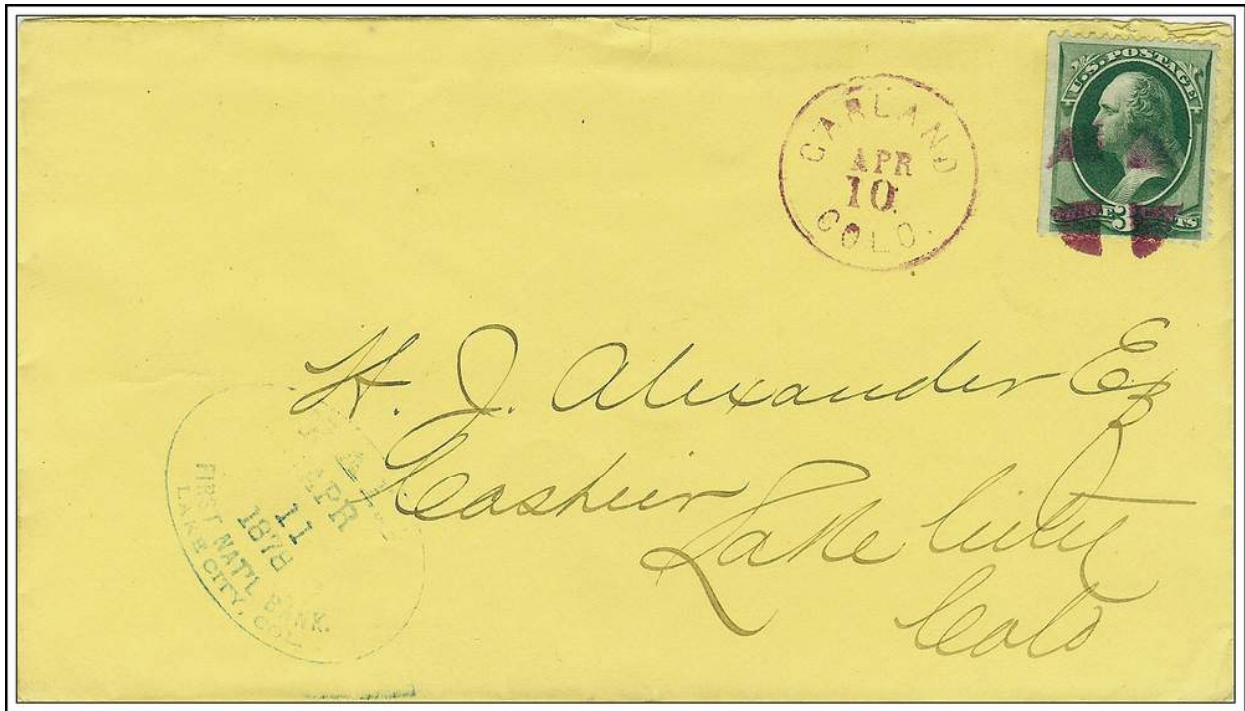 U.S. POSTAGE
GARLAND
APR
10.
COLO.
H. J. Alexander Esq
Cashier
Lake City
Colo
APR
11
1878
FIRST NAT'L BANK.
LAKE CITY, COL.